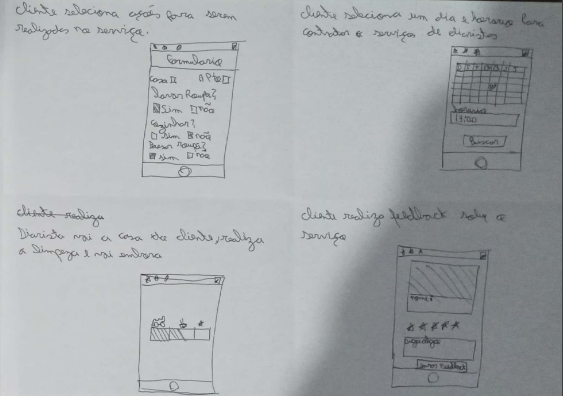 cliente seleciona ações para serem
realizadas no serviço.
Formulario
casa APto
Lavar Roupa?
Sim não
Cozinhar?
Sim não
Passar Roupa?
Sim não
cliente seleciona um dia e horario para
contratar o serviços de diaristas
horario
Buscar
cliente realiza
Diarista vai a casa do cliente, realiza
a limpeza e vai embora
cliente realiza feedback sobre o
serviço